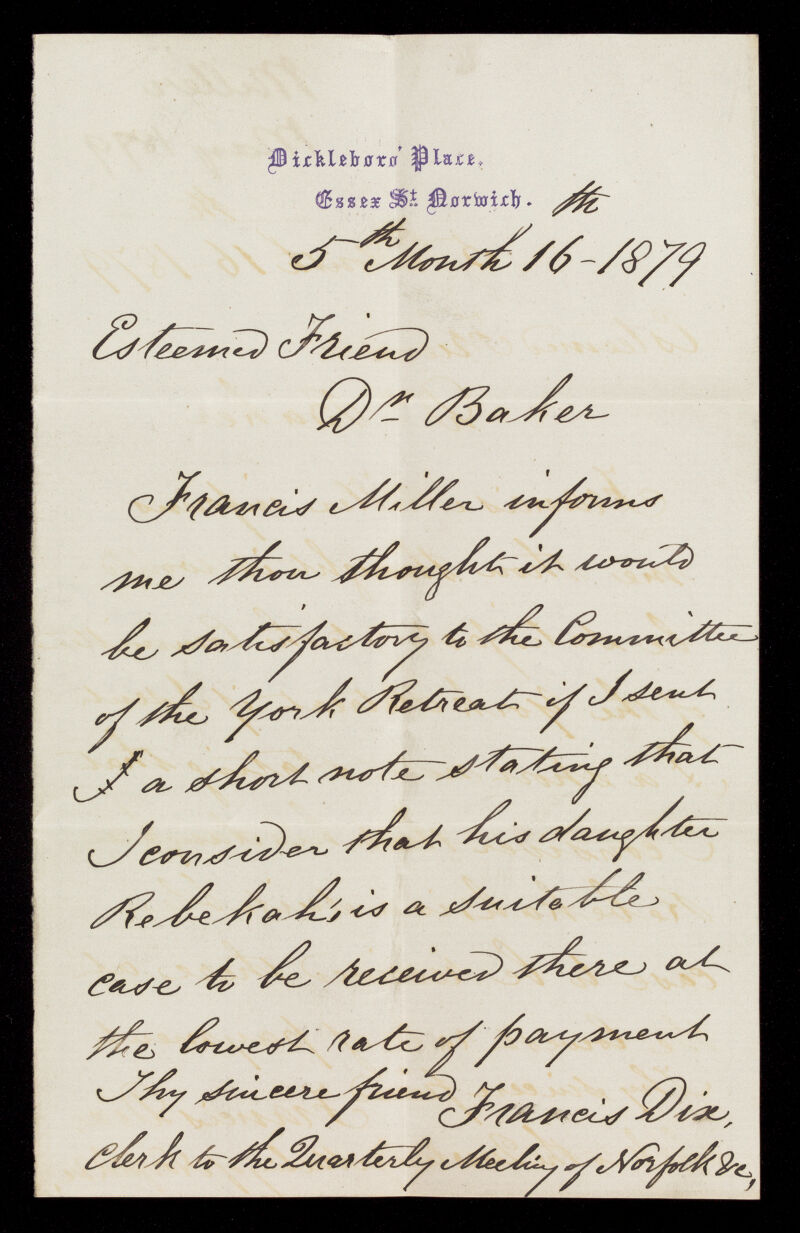 Dickleboro' Place.
Essex St. Norwich.
5th Month 16th - 1879
Esteemed Friend
Dr Baker
Francis Miller informs
me thou thought it would
be satisfactory to the Committee
of the York Retreat if I sent
a short note stating that
I consider that his daughter
Rebekah, is a suitable
case to be received there at
the lowest rate of payment
Thy sincere friend Francis Dix,
Clerk to the Quarterly Meeting of Norfolk &c,